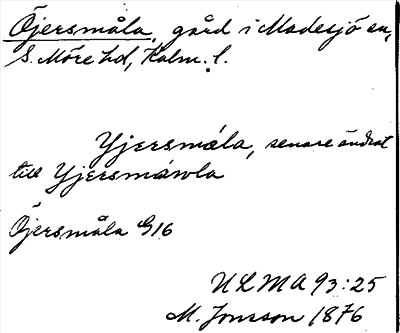 Öjersmåla, gård i Madesjö sn,
S. Möre hd, Kalm. l.
Yjersmåla, senare ändrat
till Yjersmåwla
Öjersmåla G16
ULMA 93:25
M. Jonsson 1876